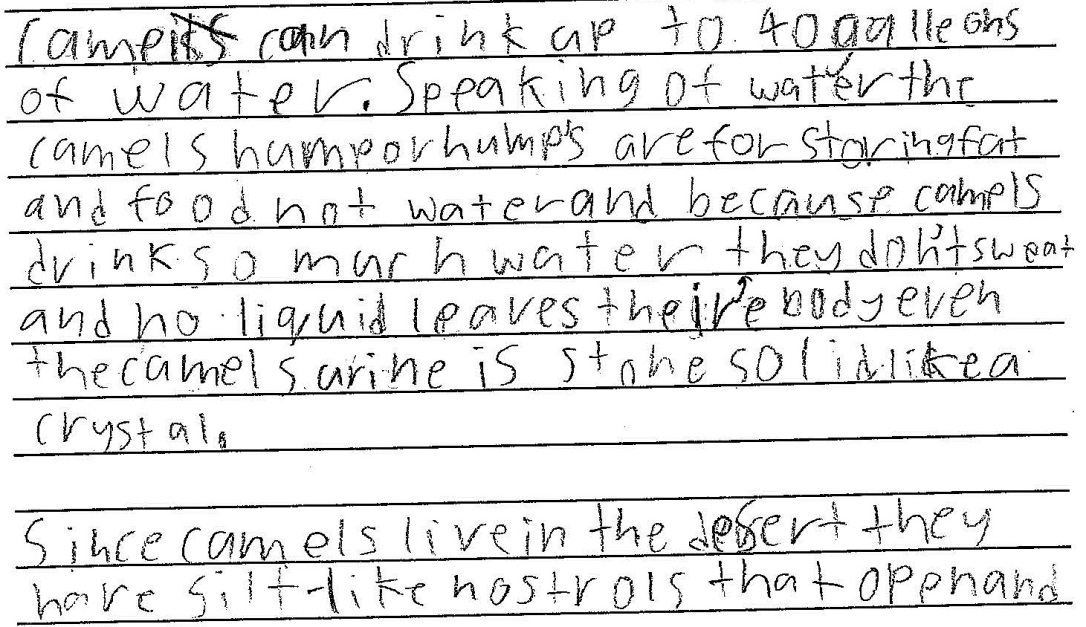 Camels can drink up to 40 galleons
of water. Speaking of water the
camels hump or hump's are for storing fat
and food not water and because camels
drink so much water they don't sweat
and no liquid leaves their body even
the camels urine is stone solid like a
crystal.
Since camels live in the desert they
have silt-like nostrols that oppen and